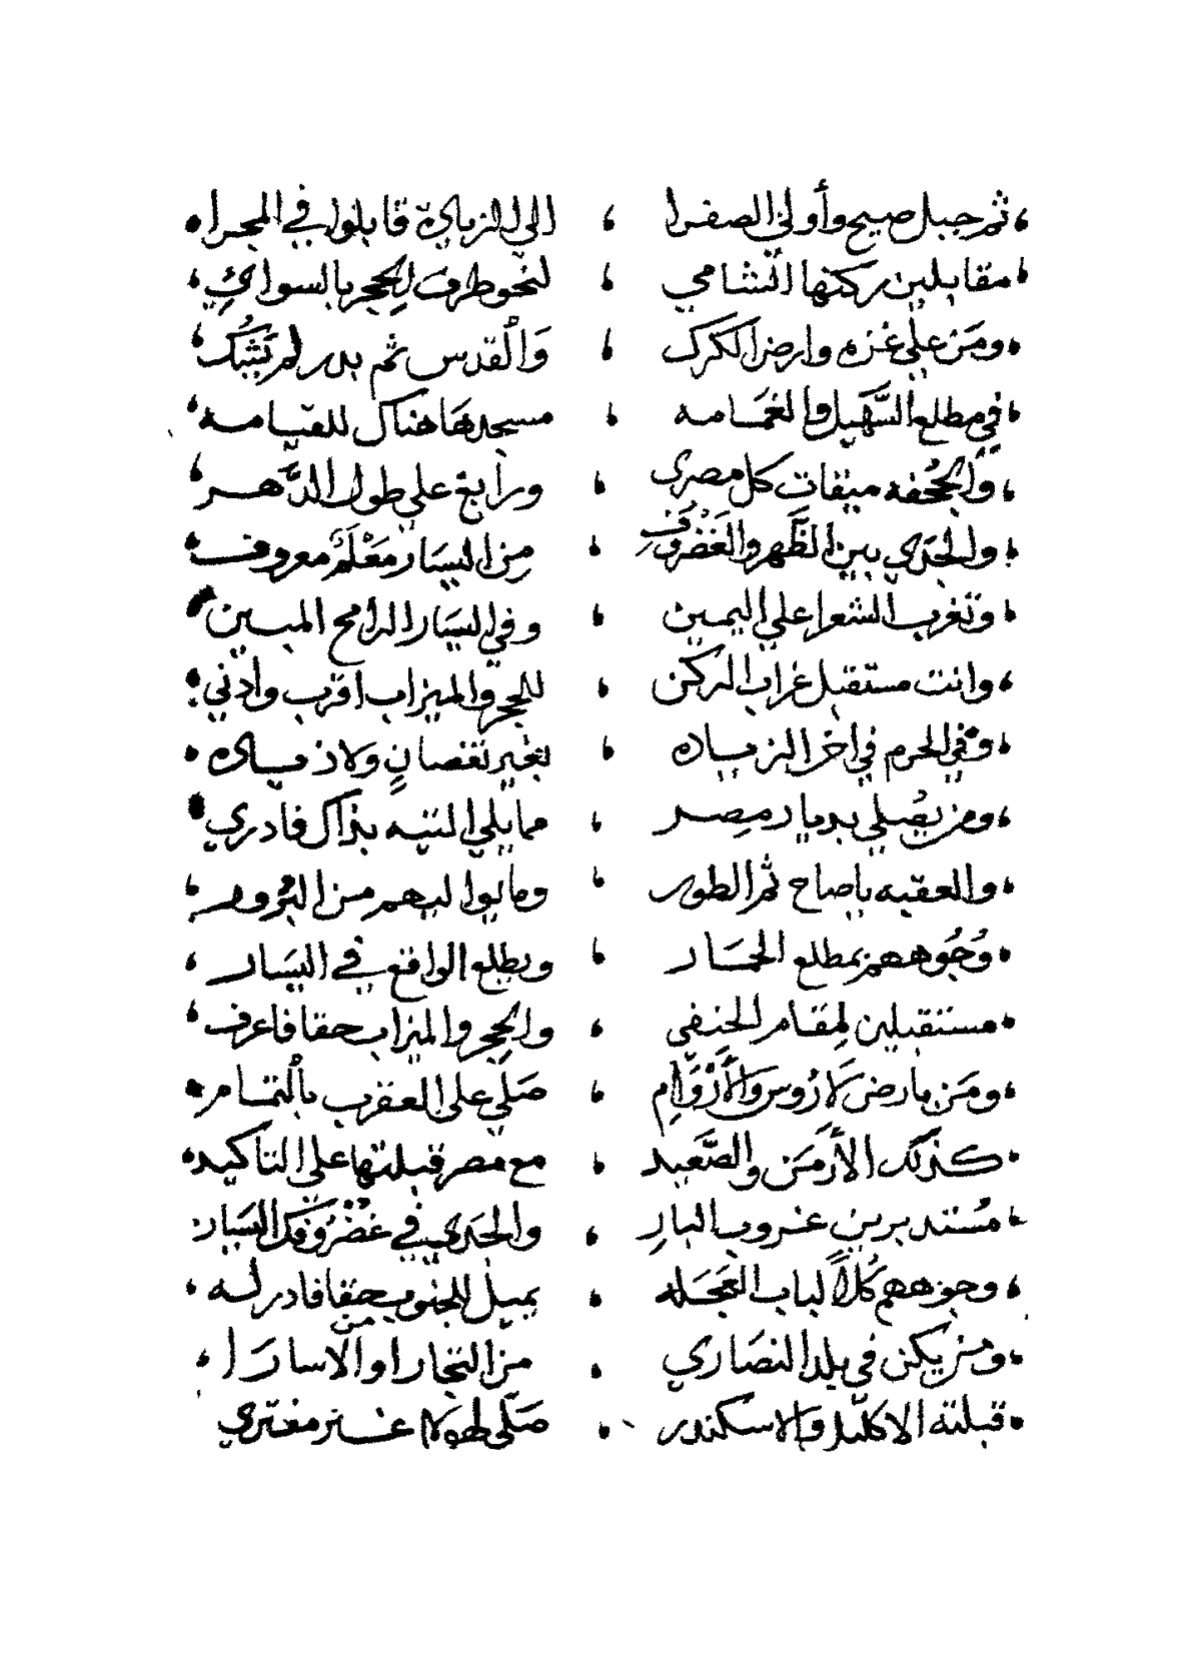 ثم جبل صبح وأولى الصفرا ، الى الزيادة قابلوا في المجرا
مقابلين ركنها الشامي ، لنحو طرف الحجر بالسوائي
ومن علي غزه وارض الكرك ، والقدس ثم بدر لم يشبك
في مطلع السهيل والغمامه ، مسجدها هناك للقيامه
والجحفه ميقات كل مصري ، ورابغ علي طول الدهر
والجدي بين الظهر والغضروف ، من اليسار معلم معروف
وتغرب الشعرا علي اليمين ، وفي اليسار الرامح المبين
وانت مستقبل غراب الركن ، للحجر والميزاب اقرب وادني
وفي الحرم في اخر الزياده ، بغير نقصان ولا زياده
ومن يصلي بديار مصر ، مما يلي التيه بذاك فادري
والعقبه ياصاح ثم الطور ، وما يوا ليهم من البرور
وجوههم بمطلع الجبار ، ويطلع الواقع في اليسار
مستقبلين لمقام الحنفي ، والحجر والميزاب حقا فاعرف
ومن بارض لاروس والأروام ، صلي على العقرب بالتمام
كذلك الأرمن والصعيد ، مع مصر قبلتها على التاكيد
مستدبرين غروب البار ، والجدي في غضروفك اليسار
وجوههم كلا لباب العجله ، يميل للجنوب حقا فادر له
ومن يكن في بلد النصاري ، من التجارا والاسارا من
قبلته الاكليل والاسكندر ، صلى لهولا غير مفتري